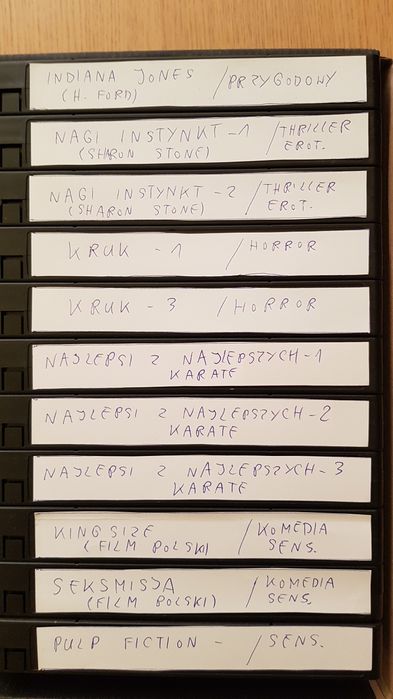 INDIANA JONES / PRZYGODOWY
(H. FORD)
NAGI INSTYNKT - 1 / THRILLER
(SHARON STONE) EROT.
NAGI INSTYNKT - 2 / THRILLER
(SHARON STONE) EROT.
KRUK - 1 / HORROR
KRUK - 3 / HORROR
NAJLEPSI Z NAJLEPSZYCH - 1
KARATE
NAJLEPSI Z NAJLEPSZYCH - 2
KARATE
NAJLEPSI Z NAJLEPSZYCH - 3
KARATE
KINGSIZE / KOMEDIA
(FILM POLSKI) SENS.
SEKSMISJA / KOMEDIA
(FILM POLSKI) SENS.
PULP FICTION - / SENS.